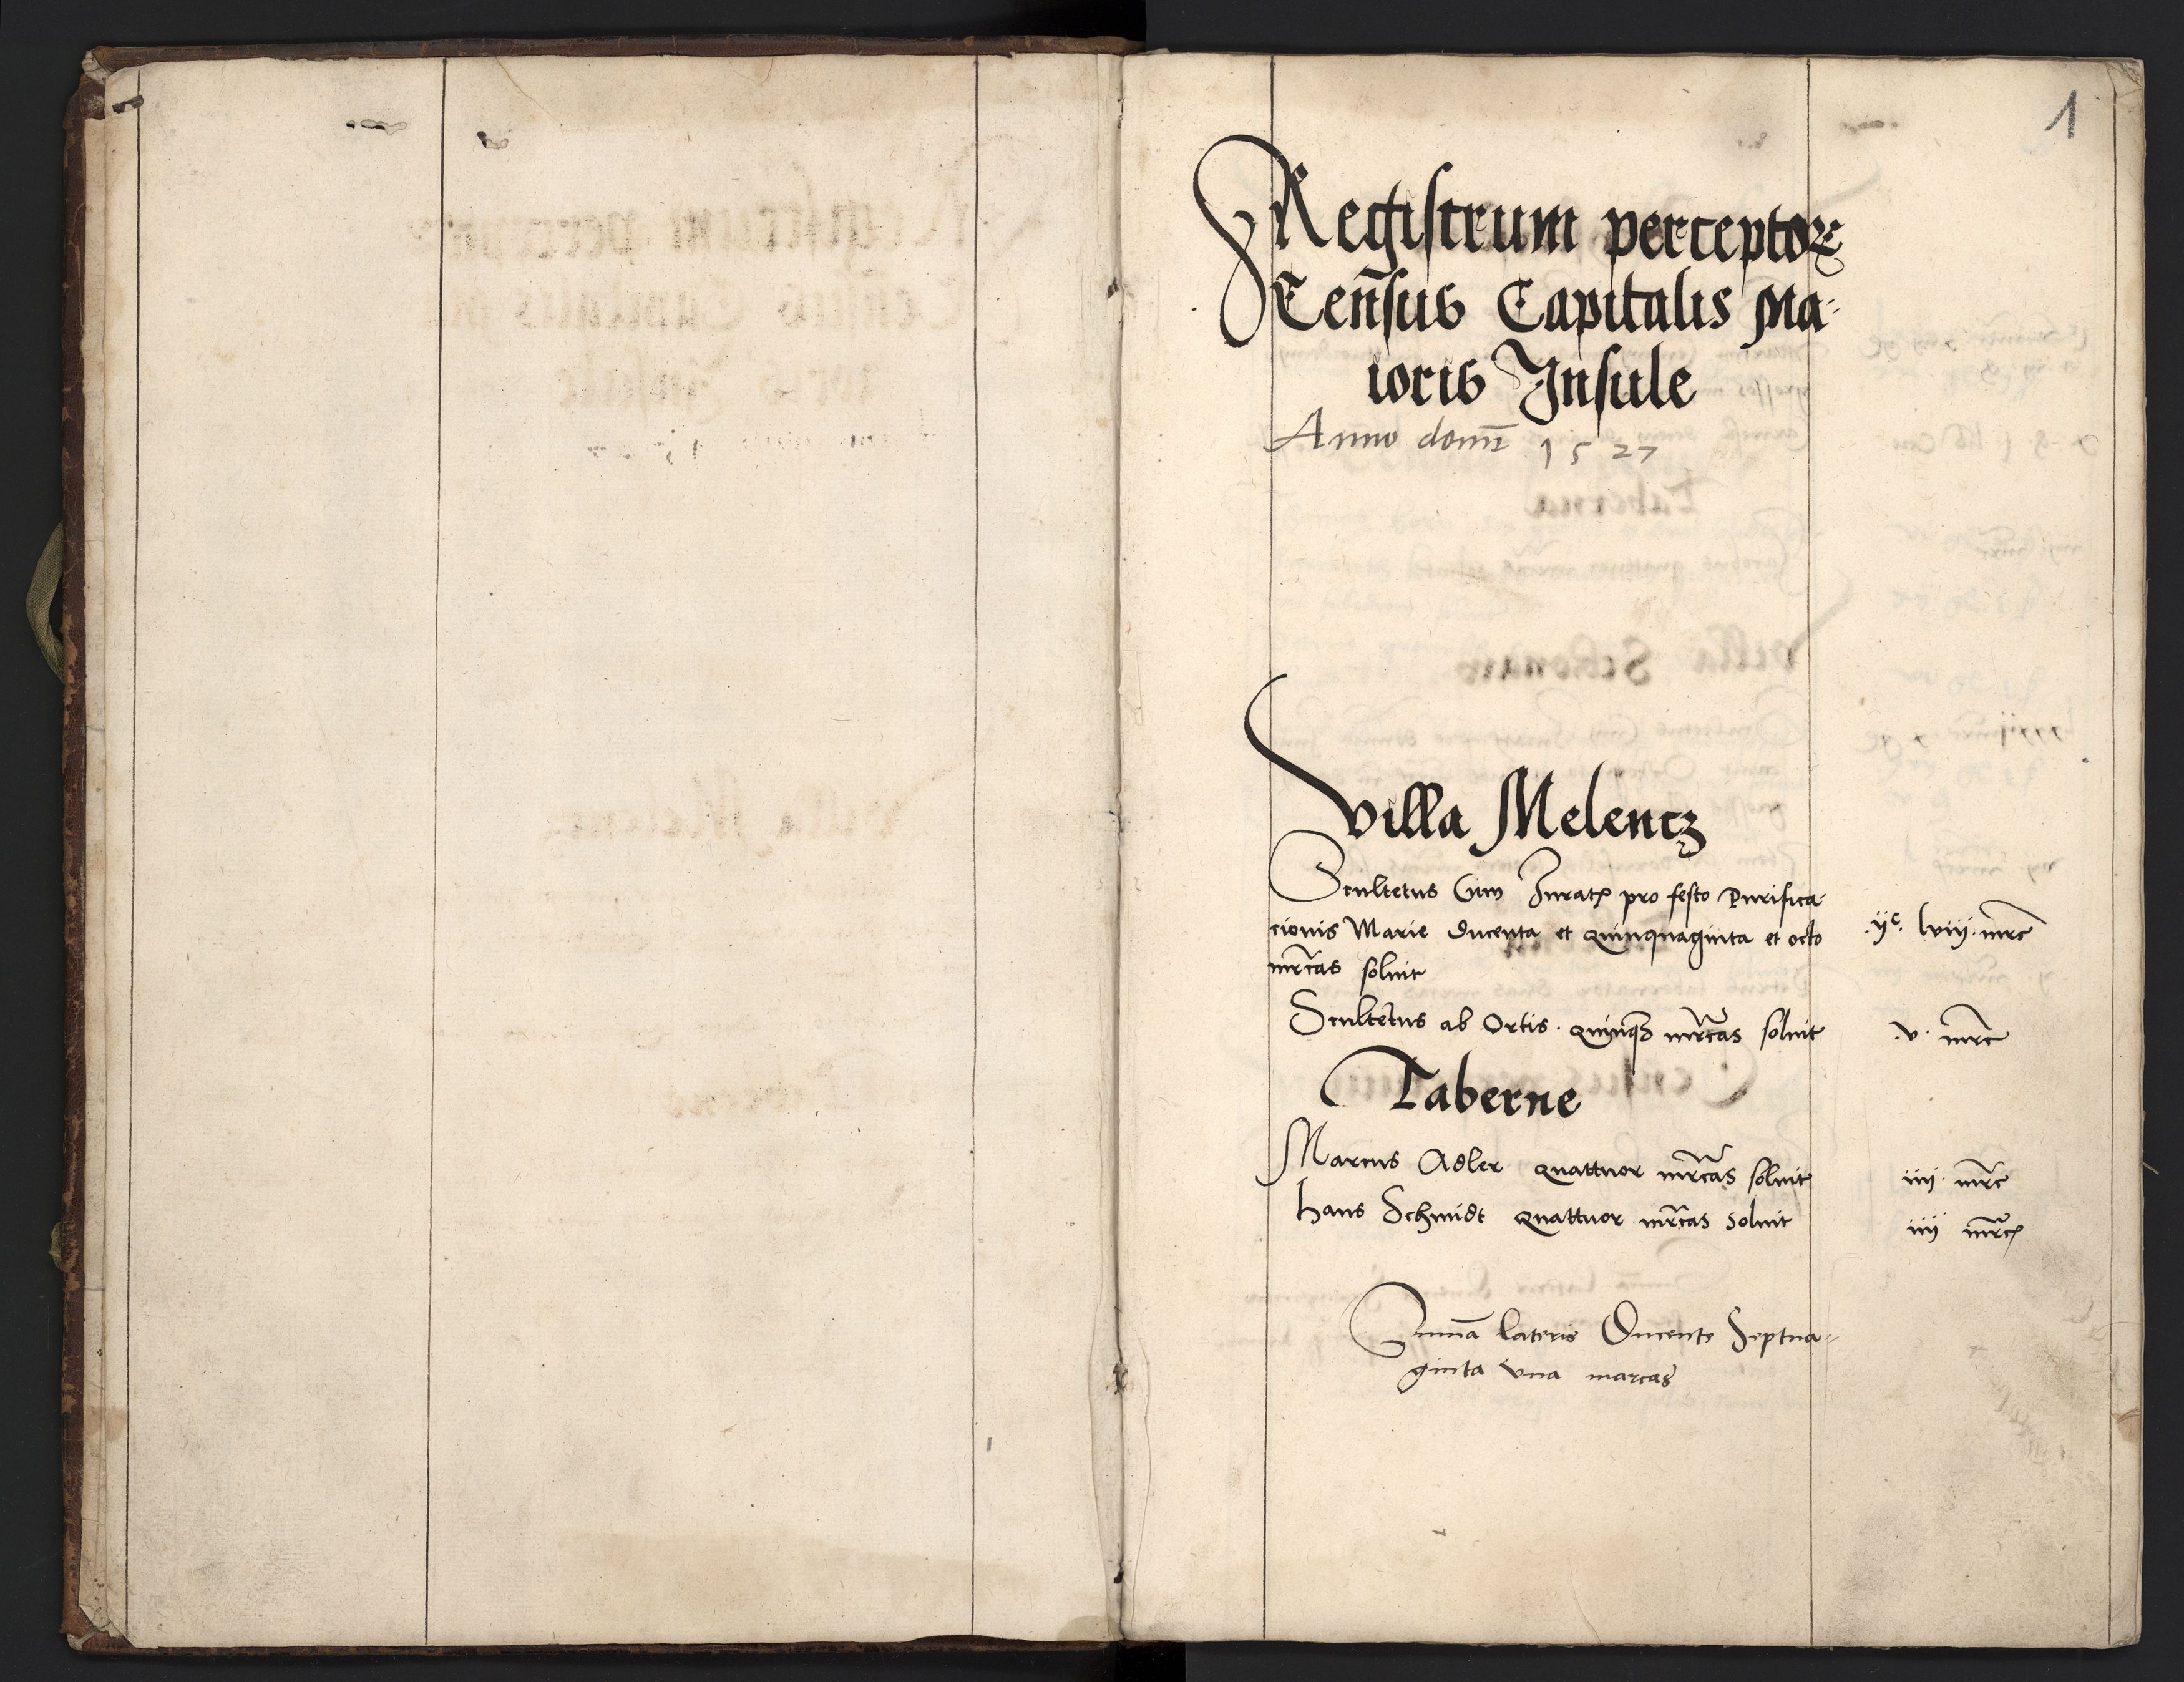 1
Registrum perceptorꝝ
Cen̄sus Capitalis Ma-
ioris Insule
Anno domī 1527
Villa Melencz
Scultetus Cum Juratꝭ pro festo Purifica-
cionis Marie ducenta et quinquaginta et octo .ijᶜ. lviij. mrc̄
mrc̄as soluit
Scultetus ab Ortis . quinqꝫ mrc̄as soluit .v. mrc̄
Taberne
Marcus Adler quattuor mrc̄as soluit iiij. mrc̄
Hans Schmidt quattuor mrc̄as soluit iiij mrc̄ꝭ
Sum̄a lateris Ducente Septua-
ginta vna marcas